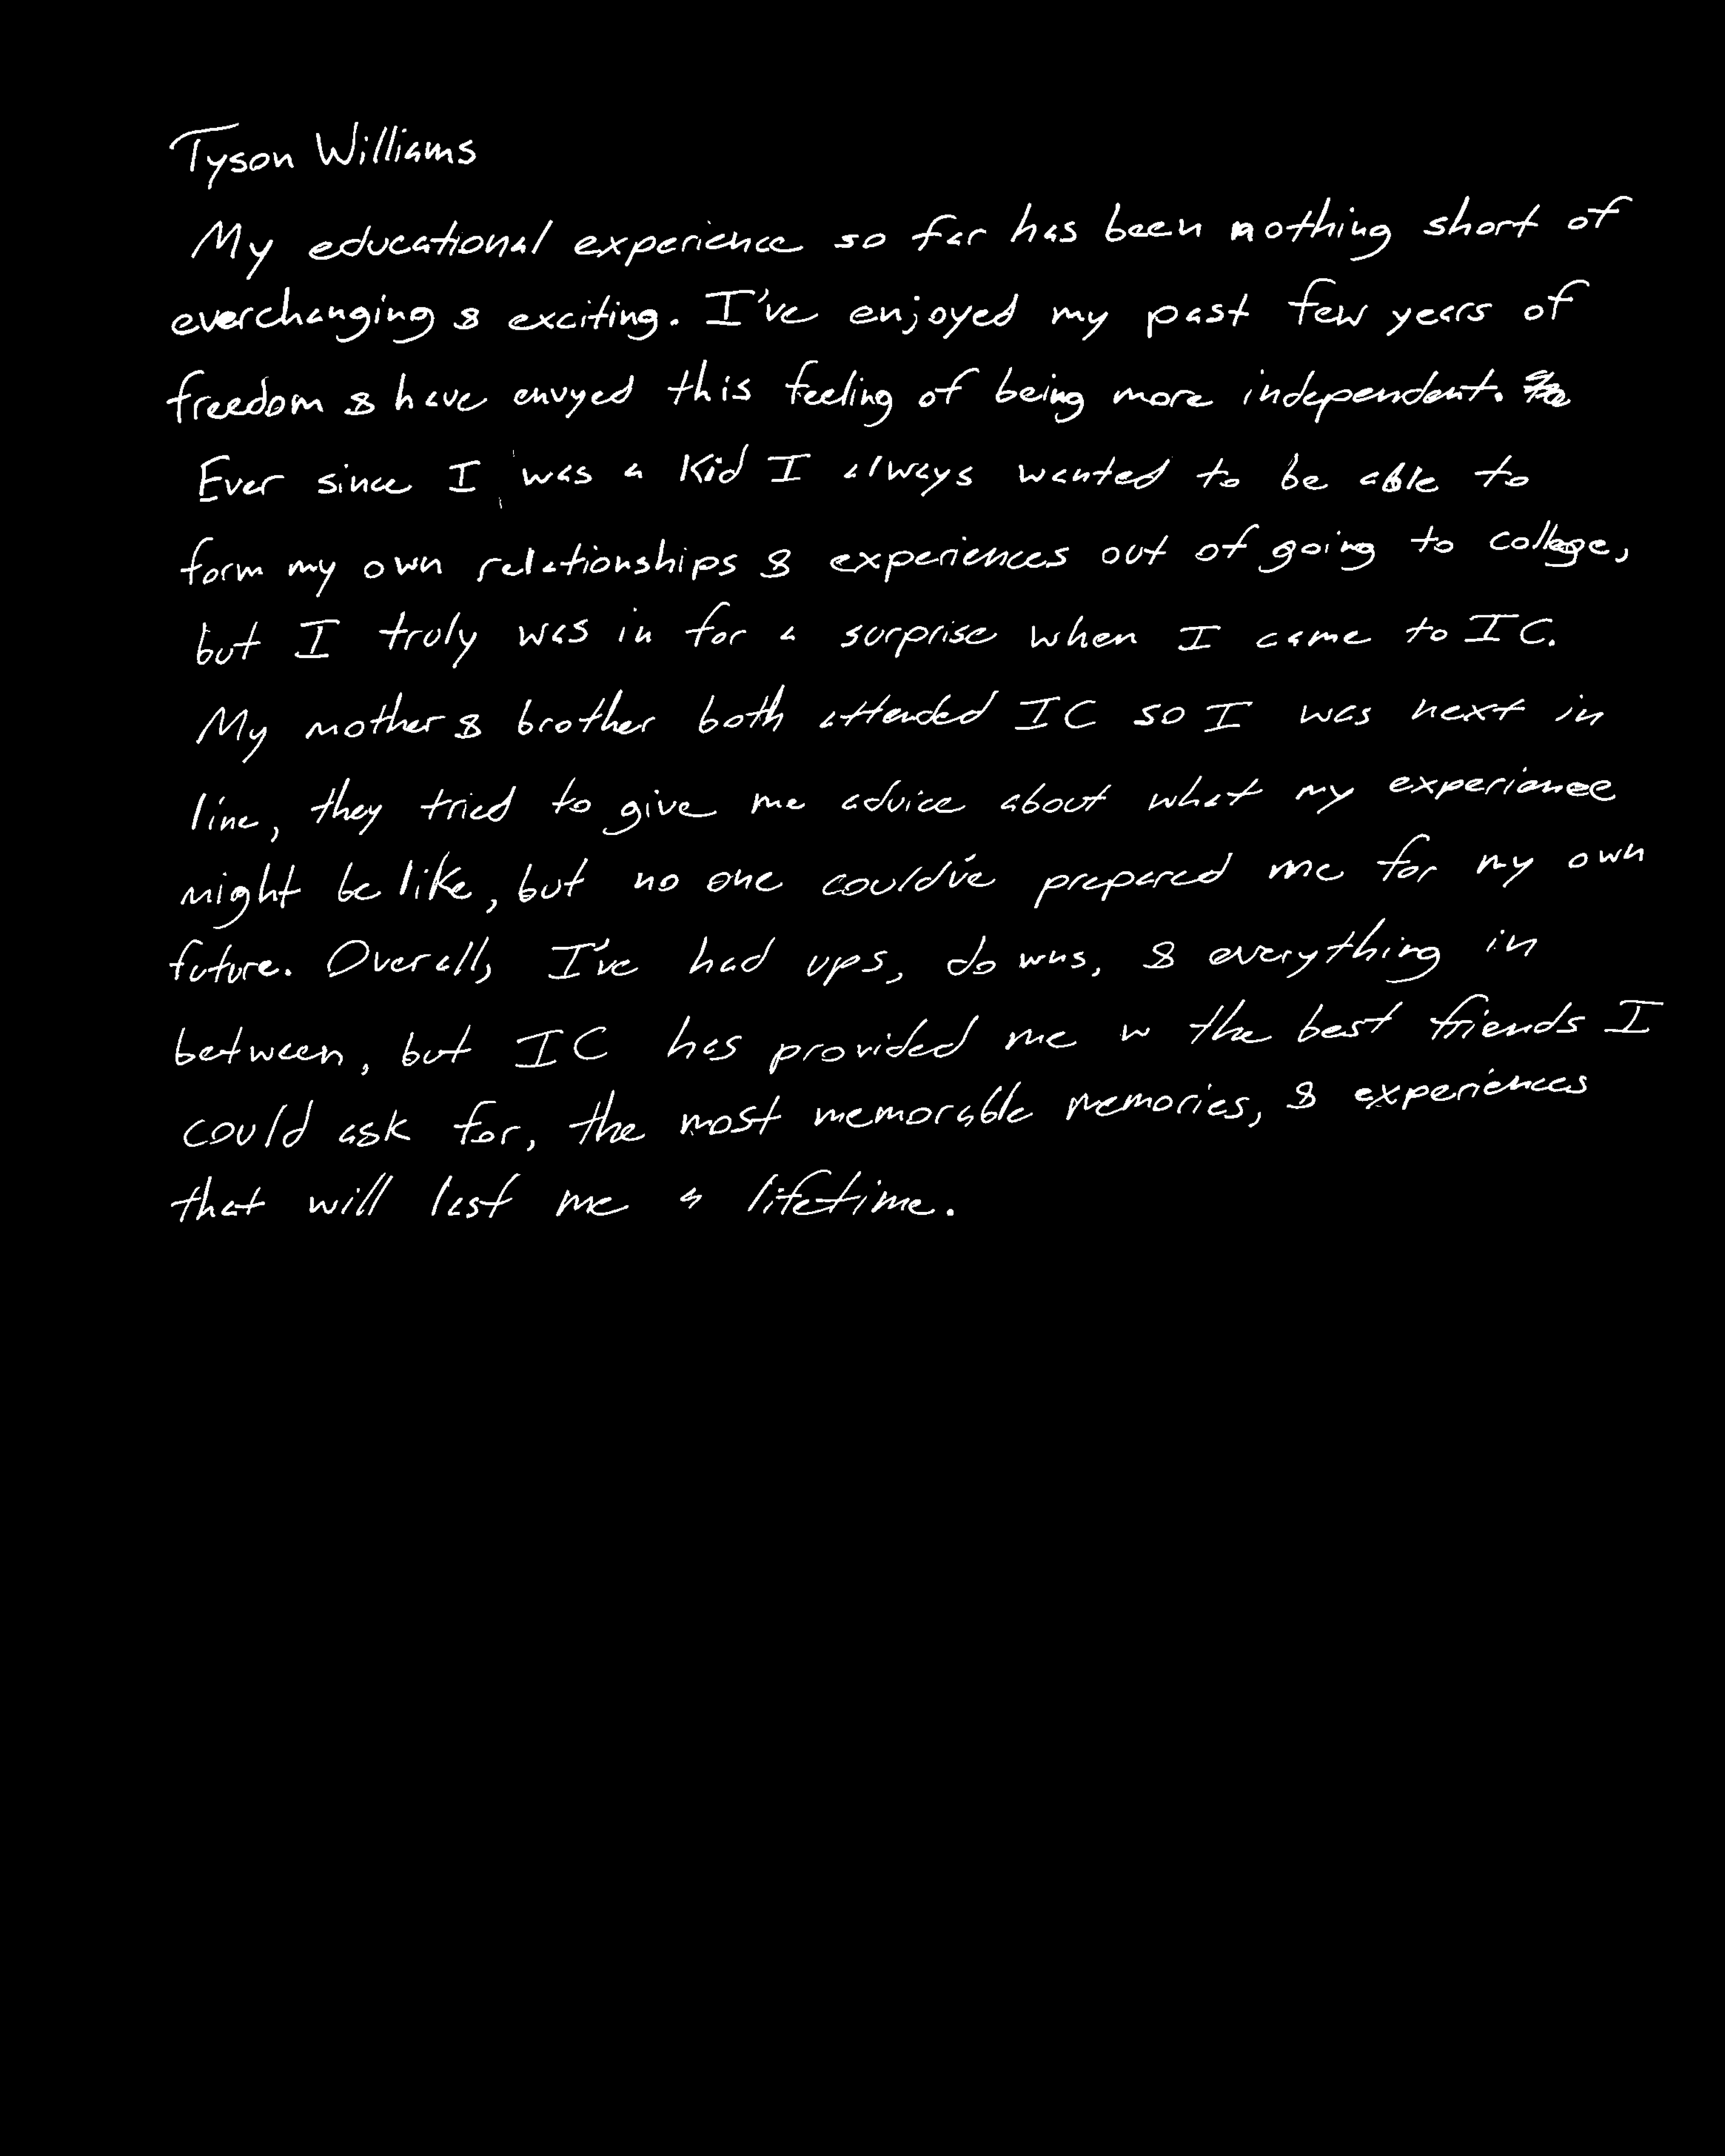 Tyson Williams
My educational experience so far has been nothing short of
everchanging & exciting. I've enjoyed my past few years of
freedom & have envyed this feeling of being more independent.
Ever since I was a kid I always wanted to be able to
form my own relationships & experiences out of going to college,
but I truly was in for a surprise when I came to IC.
My mother & brother both attended IC so I was next in
line, they tried to give me advice about what my experience
might be like, but no one could've prepared me for my own
future. Overall, I've had ups, downs, & everything in
between, but IC has provided me w the best friends I
could ask for, the most memorable memories, & experiences
that will last me a lifetime.